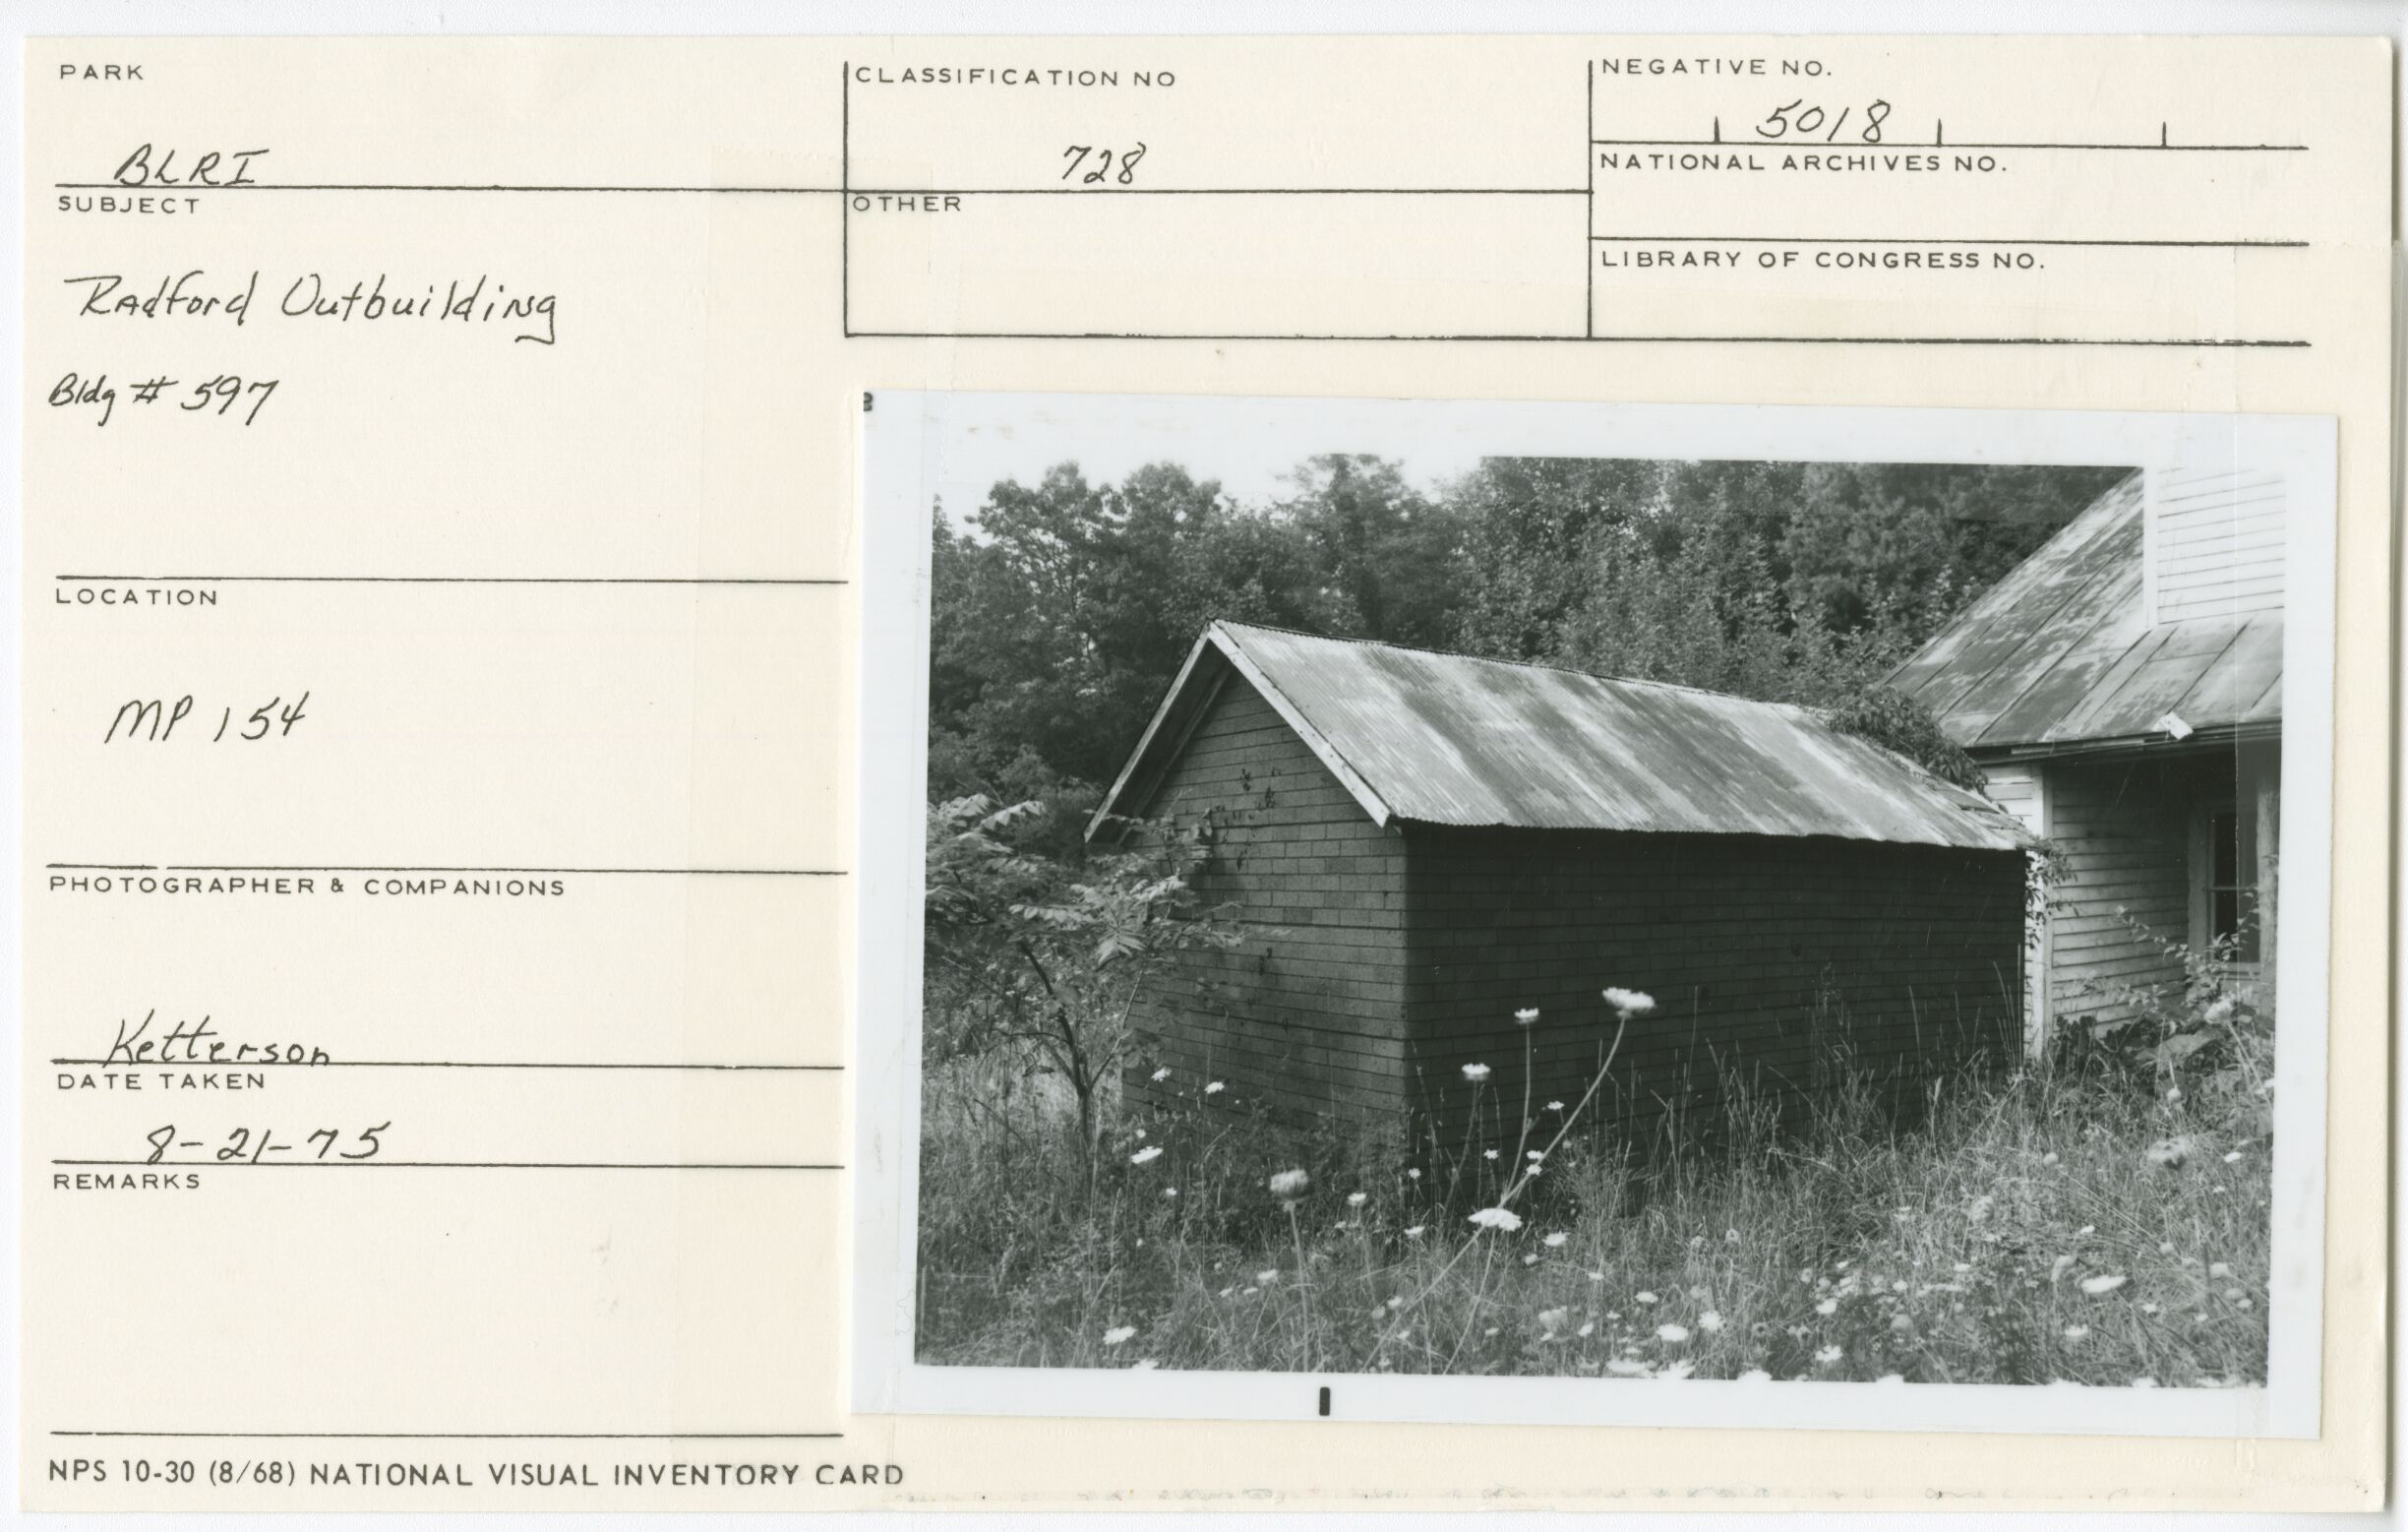 PARK
BLRI
CLASSIFICATION NO
728
NEGATIVE NO.
5018
NATIONAL ARCHIVES NO.
LIBRARY OF CONGRESS NO.
OTHER
SUBJECT
Radford Outbuilding
Bldg # 597
LOCATION
MP 154
PHOTOGRAPHER & COMPANIONS
Ketterson
DATE TAKEN
8-21-75
REMARKS
NPS 10-30 (8/68) NATIONAL VISUAL INVENTORY CARD